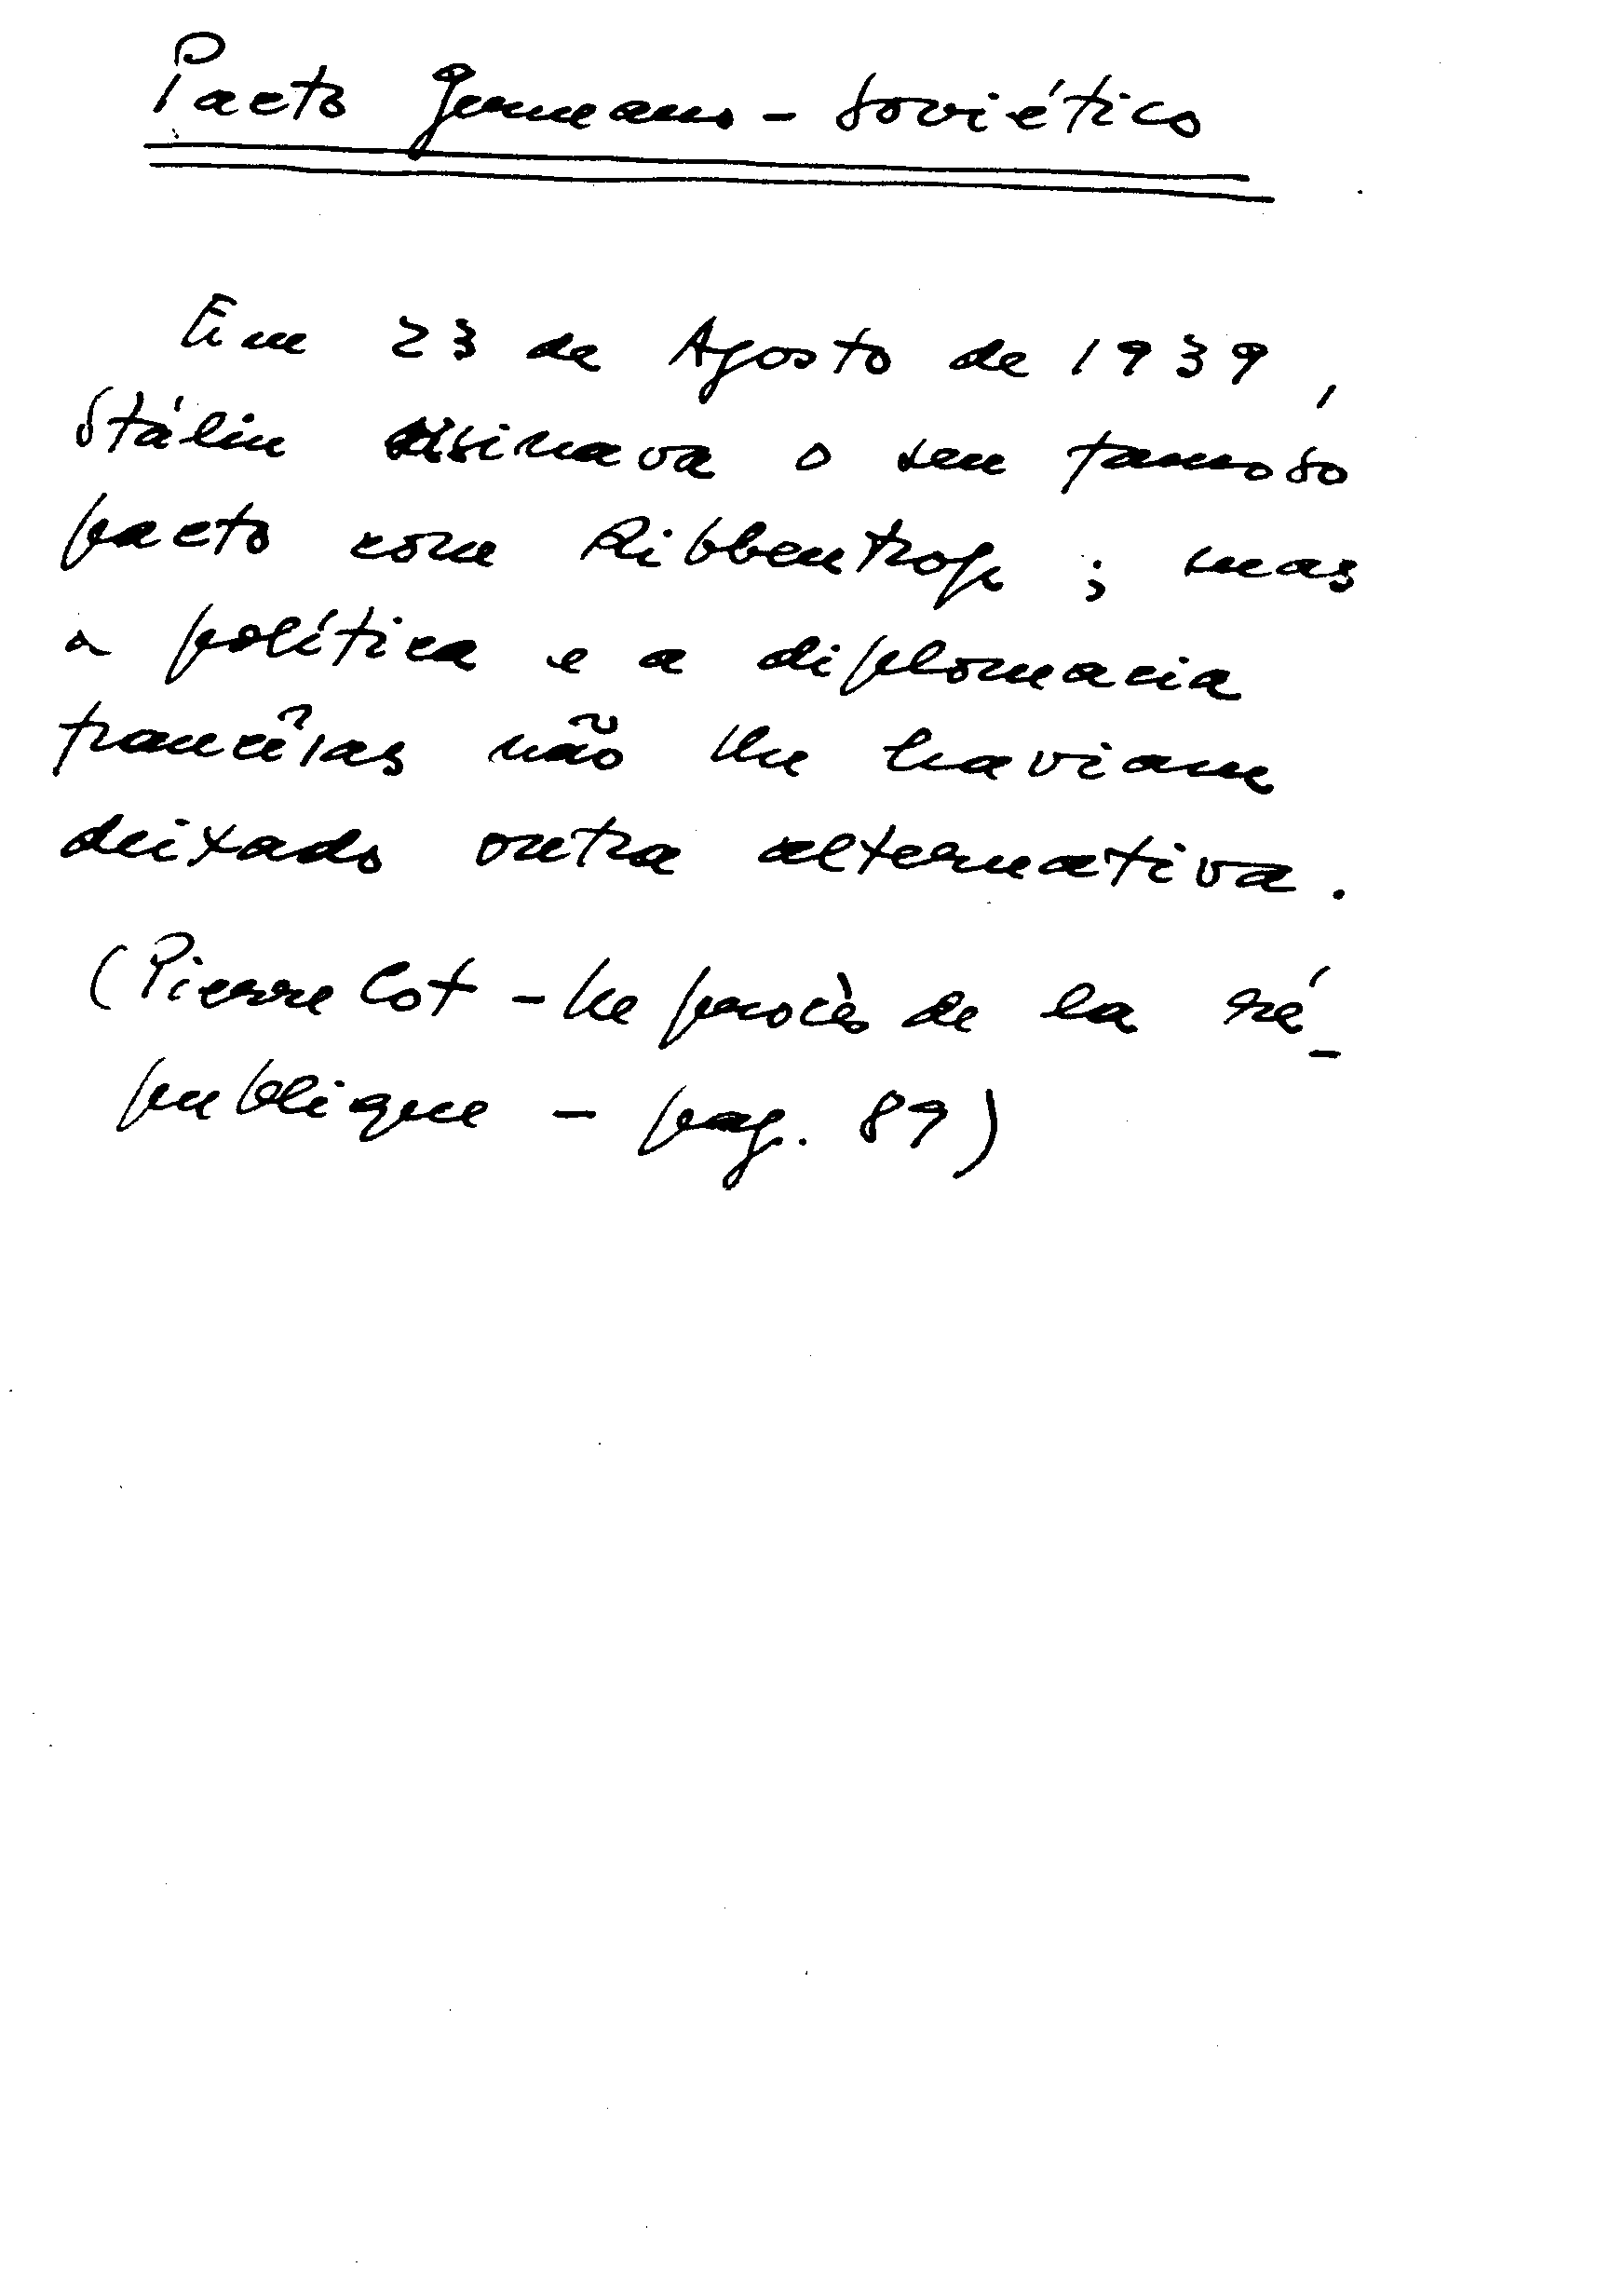 Pacto Germano-Soviético
Em 23 de Agosto de 1939,
Stálin assinava o seu famoso
pacto com Ribbentrop; mas
a política e a diplomacia
francêsas não lhe haviam
deixado outra alternativa.
(Pierre Cot - Le procès de la ré-
publique - pag. 89)